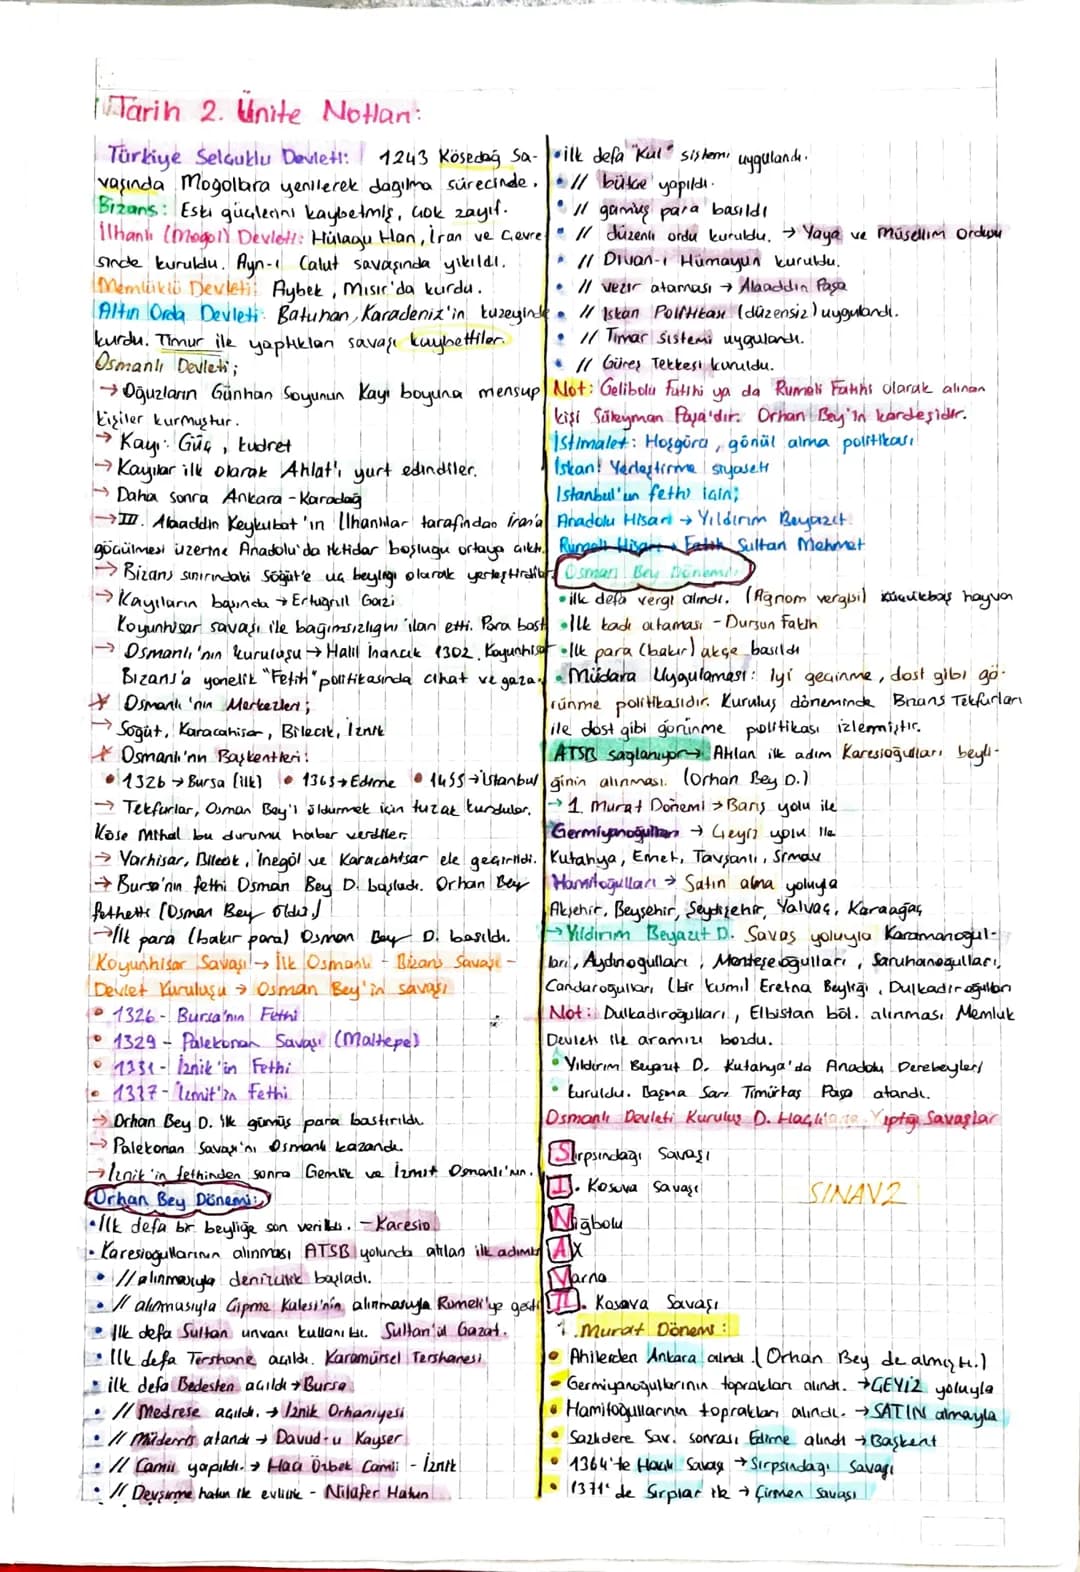 Tarih 2. Ünite Notları:
Türkiye Selçuklu Devleti: 1243 Kösedağ Sa-
vaşında Moğollara yenilerek dağılma sürecinde.
Bizans: Eski güçlerini kaybetmiş, çok zayıf.
İlhanlı (Moğol) Devleti: Hülagu Han, İran ve Çevre
sinde kuruldu. Ayn-ı Calut savaşında yıkıldı.
Memlüklü Devleti: Aybek, Mısır'da kurdu.
Altın Orda Devleti: Batuhan, Karadeniz'in kuzeyinde
kurdu. Timur ile yaptıkları savaşı kaybettiler.
Osmanlı Devleti;
→ Oğuzların Günhan Soyunun Kayı boyuna mensup
kişiler kurmuştur.
→ Kayı: Güç, kudret
→ Kayılar ilk olarak Ahlat'ı yurt edindiler.
→ Daha sonra Ankara - Karadağ
→ III. Alaaddin Keykubat'ın İlhanlılar tarafından İran'a
göçülmesi üzerine Anadolu'da iktidar boşluğu ortaya çıktı.
→ Bizans sınırındaki Söğüt'e uç beyliği olarak yerleştirdiler
→ Kayıların başında → Ertuğrul Gazi
Koyunhisar savaşı ile bağımsızlığını ilan etti. Para bastı
→ Osmanlı'nın kuruluşu → Halil İnancık 1302 Koyunhisar
Bizans'a yönelik "Fetih" politikasında cihat ve gaza.
* Osmanlı'nın Merkezleri;
→ Söğüt, Karacahisar, Bilecik, İznik
* Osmanlı'nın Başkentleri:
• 1326 → Bursa (ilk) • 1365 → Edirne • 1455 → İstanbul
→ Tekfurlar, Osman Bey'i öldürmek için tuzak kurdular.
Köse Mihal bu durumu haber verdiler.
→ Yarhisar, Bilecik, İnegöl ve Karacahisar ele geçirildi.
→ Bursa'nın fethi Osman Bey D. başladı. Orhan Bey
fethetti (Osman Bey öldü)
→ İlk para (bakır para) Osman Bey D. basıldı.
Koyunhisar Savaşı → İlk Osmanlı - Bizans Savaşı -
Devlet Kuruluşu → Osman Bey'in savaşı
• 1326 - Bursa'nın Fethi
• 1329 - Palekonan Savaşı (Maltepe)
• 1331 - İznik'in Fethi
• 1337 - İzmit'in Fethi
→ Orhan Bey D. ilk gümüş para bastırıldı
→ Palekonan Savaşı'nı Osmanlı kazandı.
→ İznik'in fethinden sonra Gemlik ve İzmit Osmanlı'nın.
Orhan Bey Dönemi:
• İlk defa bir beyliğe son verildi. - Karesio
• Karesioğullarının alınması ATSB yolunda atılan ilk adımdı
• // alınmasıyla denizcilik başladı.
• // alınmasıyla Çipme Kalesi'nin alınmasıyla Rumeli'ye geçti
• İlk defa Sultan unvanı kullanıldı. Sultan'ül Gazat.
• İlk defa Tershane açıldı. Karamürsel Tershanesi
• ilk defa Bedesten açıldı → Bursa
• // Medrese açıldı. → İznik Orhaniyesi
• // Müderris atandı → Davud-u Kayser
• // Camii yapıldı. → Hacı Özbek Camii - İznik
• // Devşirme hatun ile evlilik - Nilüfer Hatun
• ilk defa "Kul" sistemi uygulandı.
• // bütçe yapıldı.
• // gümüş para basıldı
• // düzenli ordu kuruldu. → Yaya ve Müsellim Ordusu
• // Divan-ı Hümayun kuruldu.
• // vezir ataması → Alaaddin Paşa
• // İskan Politikası (düzensiz) uygulandı.
• // Tımar sistemi uygulandı.
• // Güreş Tekkesi kuruldu.
Not: Gelibolu Fatihi ya da Rumeli Fatihi olarak alınan
kişi Süleyman Paşa'dır. Orhan Bey'in kardeşidir.
İstimalet: Hoşgörü, gönül alma politikası
İskan: Yerleştirme siyaseti
İstanbul'un fethi için;
Anadolu Hisarı → Yıldırım Beyazıt
Rumeli Hisarı → Fatih Sultan Mehmet
Osman Bey Dönemi:
• ilk defa vergi alındı. (Ağnom vergisi) küçükbaş hayvan
• İlk kadı ataması - Dursun Fakih
• İlk para (bakır) akçe basıldı
• Müdara Uygulaması: İyi geçinme, dost gibi gö-
rünme politikasıdır. Kuruluş döneminde Bizans Tekfurları
ile dost gibi görünme politikası izlenmiştir.
ATSB sağlanıyor → Atılan ilk adım Karesioğulları beyli-
ğinin alınması. (Orhan Bey D.)
→ 1. Murat Dönemi → Barış yolu ile
Germiyanoğulları → Çeyiz yolu ile
Kütahya, Emet, Tavşanlı, Simav
Hamitoğulları → Satın alma yoluyla
Akşehir, Beyşehir, Seydişehir, Yalvaç, Karaağaç
→ Yıldırım Beyazıt D. Savaş yoluyla Karamanoğul-
ları, Aydınoğulları, Menteşeoğulları, Saruhanoğulları,
Candaroğulları (bir kısmı) Eretna Beyliği, Dulkadiroğulları
Not: Dulkadiroğulları, Elbistan böl. alınması Memluk
Devleti ile aramızı bozdu.
• Yıldırım Beyazıt D. Kütahya'da Anadolu Derebeyleri
• kuruldu. Başına Sarı Timurtaş Paşa atandı.
Osmanlı Devleti Kuruluş D. Haçlılarla Yaptığı Savaşlar
Sırpsındağı Savaşı
I. Kosova Savaşı
SINAV2
Niğbolu
AX
Varna
II. Kosova Savaşı
1. Murat Dönemi:
• Ahilerden Ankara alındı. (Orhan Bey de almıştı.)
• Germiyanoğullarının toprakları alındı. → ÇEYİZ yoluyla
• Hamitoğullarının toprakları alındı. → SATIN almayla
• Sazlıdere Sav. sonrası Edirne alındı → Başkent
• 1364'te Haçlı Savaşı → Sırpsındağı Savaşı
• 1371'de Sırplar ile → Çirmen Savaşı